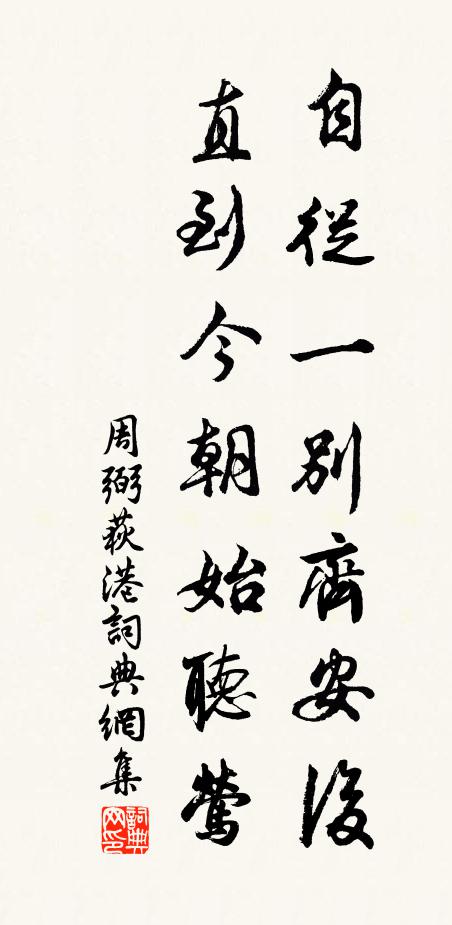 自從一別齊安後
直到今朝始聽鶯
周弼荻港詞典網集
詞典网印